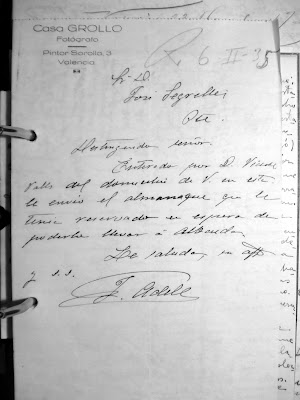 Casa GROLLO
Fotógrafo
Pintor Sorolla, 3
Valencia
R. 6 II-35
Sr. D.
José Segrelles
Pte.
Distinguido señor:
Enterado por D. Vicente
Valls del domicilio de V. en esta
le envio el almanaque que le
tenia reservado en espera de
poderlo llevar a Albaida
Le saluda, su aff
y s.s.